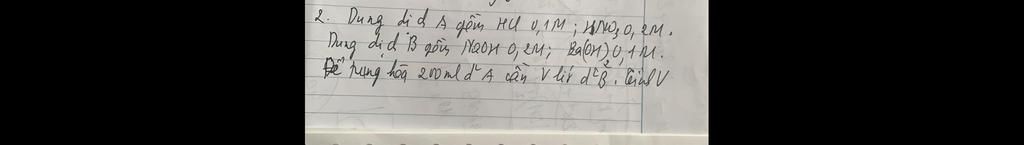 2. Dung dịch A gồm HCl 0,1M; HNO3 0,2M.
Dung dịch B gồm NaOH 0,2M; Ba(OH)2 0,1M.
Để trung hoà 200ml d² A cần V lít d² B. Tính V